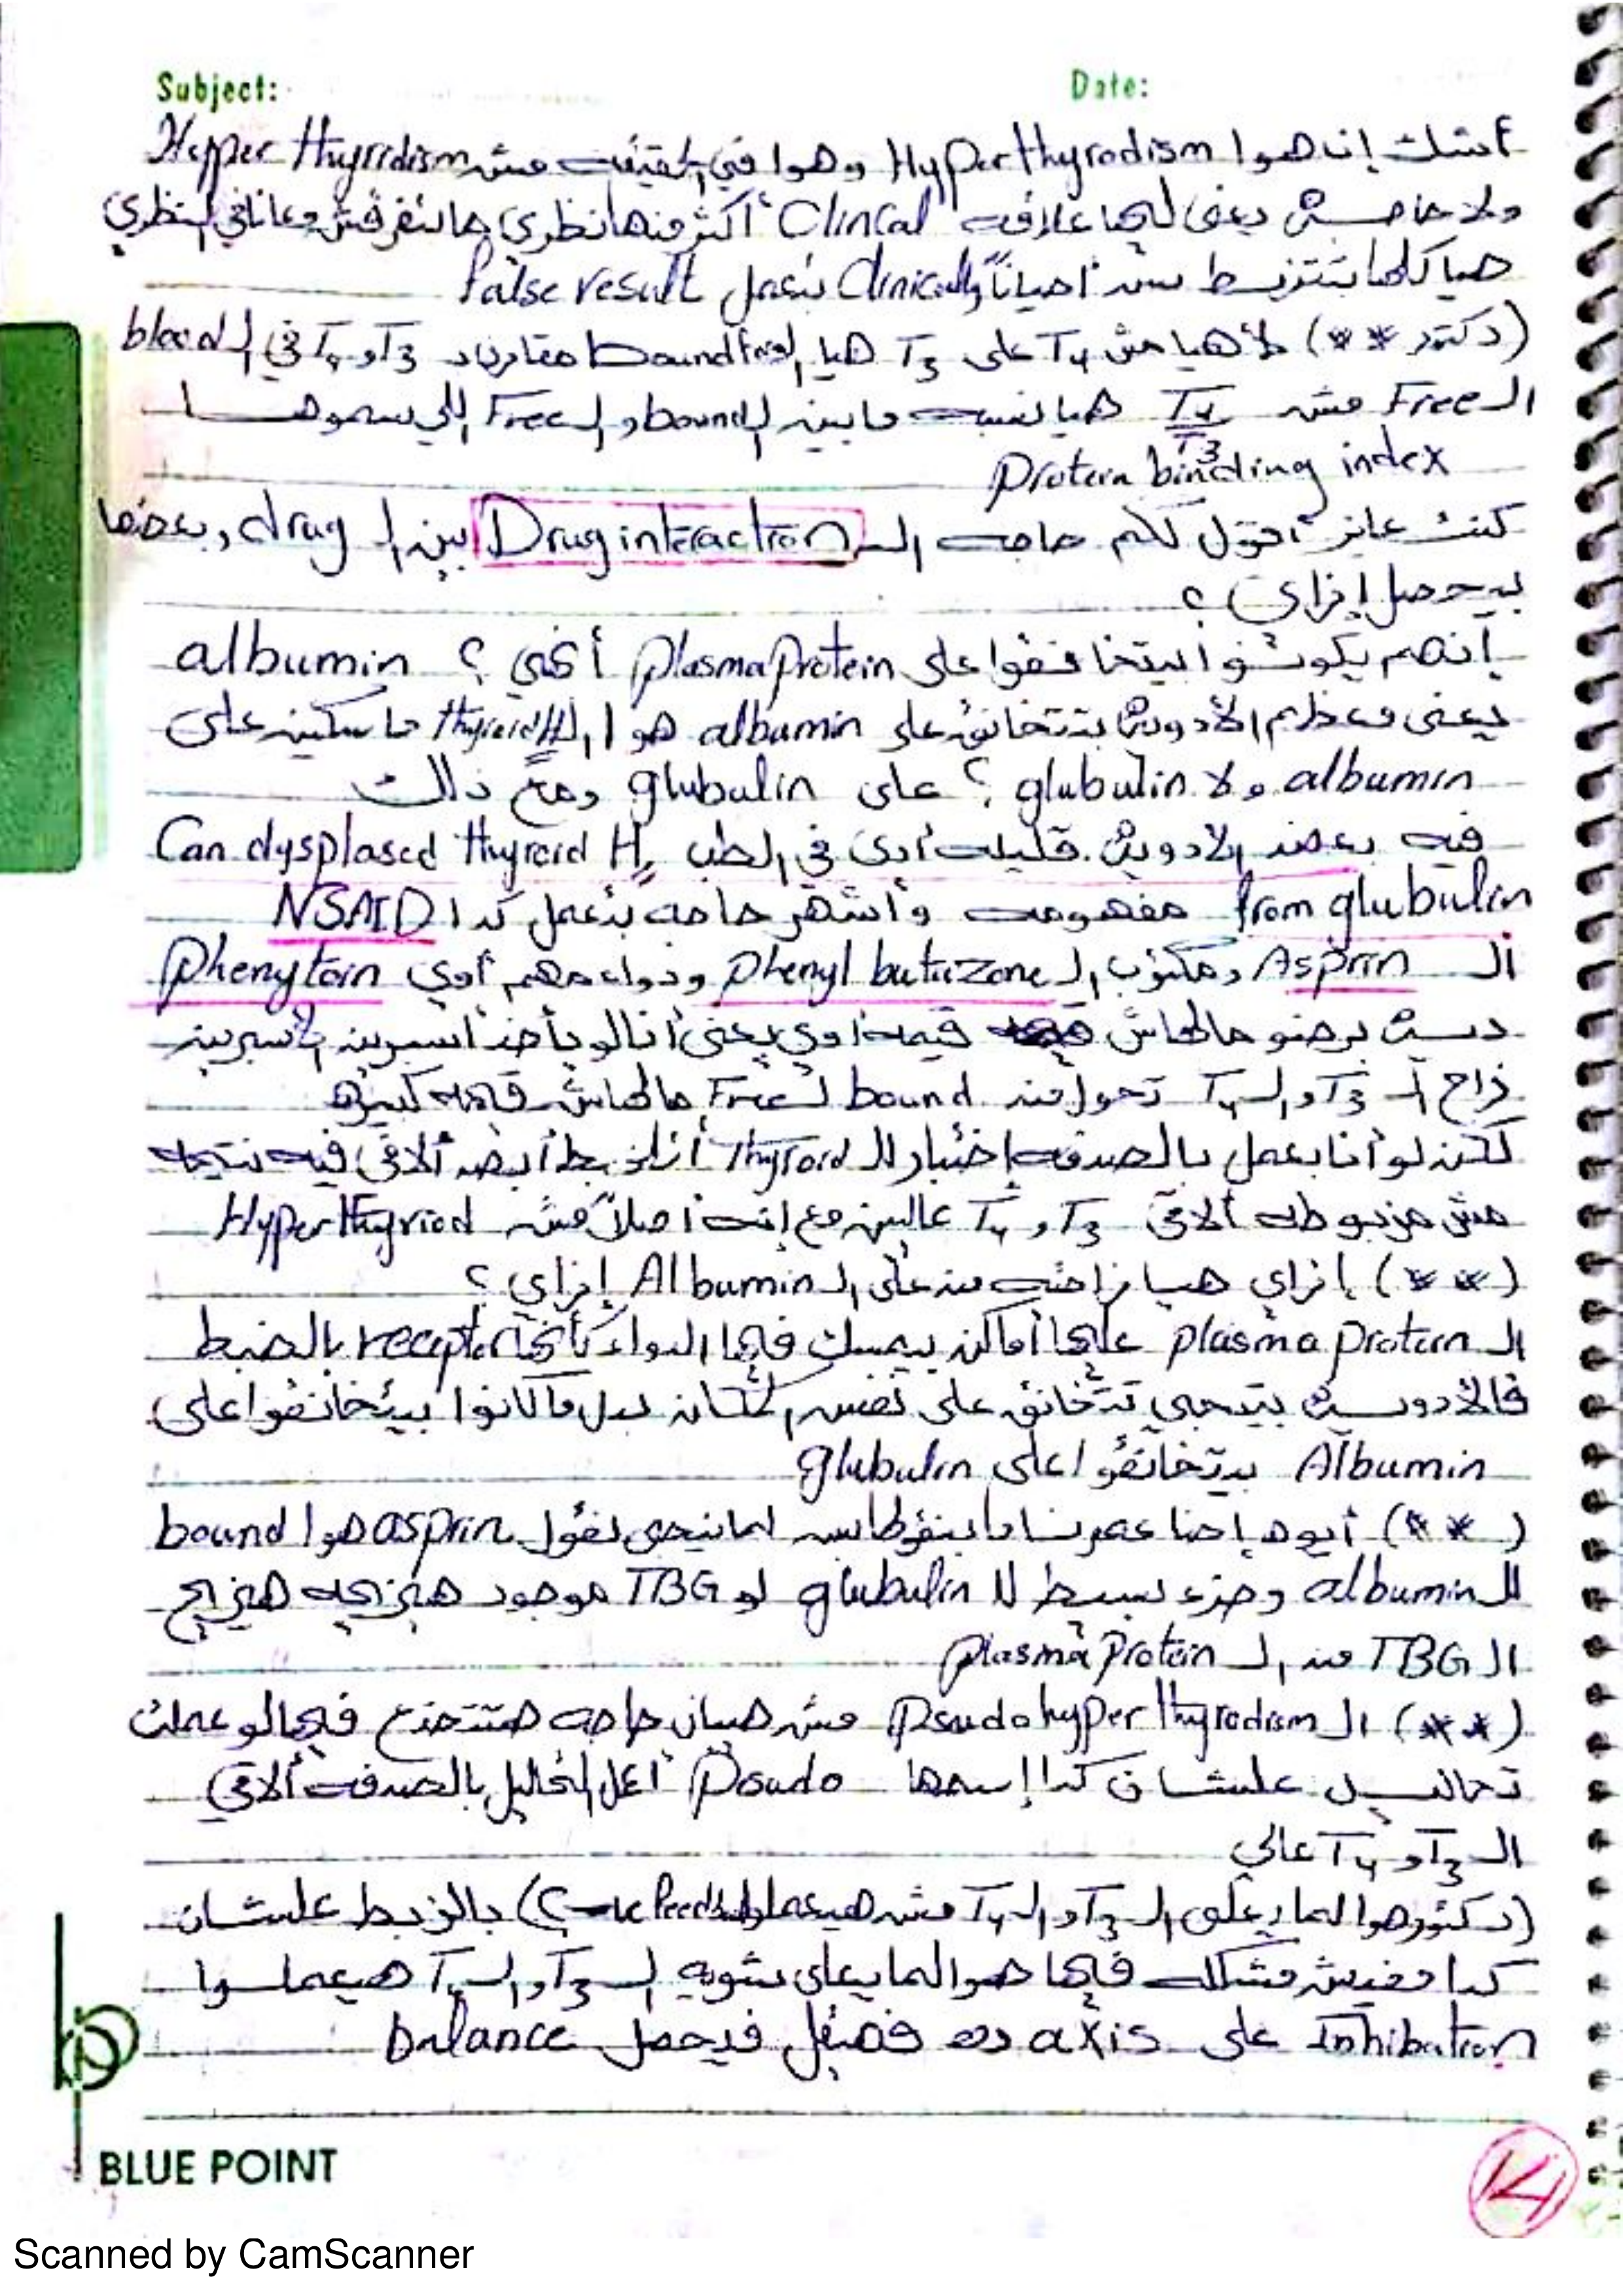 Subject: Date:
أشك إن هوا Hyperthyrodism وهوا في الحقيقة مش Hyper thyridism
ولا حاجة يعني ليها علاقة Clincal أكثر منها نظري مالتفرقش معانا في النظري
هيا كلها بتتربط بس أحياناً Clinically بتعمل false result
(دكتور **) لأ هيا مش T4 على T3 هيا bound مقارنة د T3 و T4 في الـ blood
الـ Free مش T4/T3 هيا نسبة ما بين الـ bound و الـ Free اللي سموها
Protein binding index
كنت عايز أقول لكم حاجة الـ Drug interaction بين الـ drug وبعضها
بيحصل إزاي ؟
إنهم يكونوا بيتخانقوا على plasma protein أكني ؟ albumin
يعني معظم الأدوية بتتخانق على albumin هوا الـ thyroid H ماسكين على
albumin ولا glubulin ؟ على glubulin ومع ذلك
فيه بعض الأدوية قليلة أوي في الطب Can dysplased thyroid H,
from glubulin مفهومة وأشهر حاجة بتعمل كدا NSAID
الـ Asprin ومكتوب الـ phenyl butazone ودواء مهم أوي phenytoin
ديت برضو مالهاش قيمة أوي يعني أنا لو بأخذ أسبرين الأسبرين
زاح الـ T3 والـ T4 تحول من bound لـ Free مالهاش قيمة كبيرة
لكن لو أنا بعمل بالصدفة إختبار للـ thyroid أتلخبط أبص ألاقي فيه نتيجة
مش مزبوطة ألاقي T3 و T4 عاليين مع إنه أصلاً مش Hyperthyriod
(**) إزاي هيا زاحته من على الـ Albumin إزاي ؟
الـ plasma protein عليها أماكن بيمسك فيها الدواء كأنها receptor بالضبط
فالأدوية بتيجي تتخانق على نفس المكان بدل ما كانوا بيتخانقوا على
Albumin بيتخانقوا على glubulin
(**) أيوه إحنا عمرنا ما بنقول بس لما نيجي نقول asprin هوا bound
للـ albumin وجزء بسيط للـ glubulin لو TBG موجود هيزيحه هيزيح
الـ TBG من الـ plasma protein
(**) الـ psudohyperthyrodism مش هيبان حاجة هتتخدع فيها لو عملت
تحاليل علشان كدا إسمها Psudo أعمل التحاليل بالصدفة ألاقي
الـ T3 و T4 عالي
(دكتور هوا لما يعلى الـ T3 والـ T4 مش هيعملوا -ve feedback؟) بالزبط علشان
كدا مفيش مشكلة فيها هوا لما يعلى شوية الـ T3 والـ T4 هيعملوا
Inhibation على axis ده فضيل فيحصل balance
BLUE POINT
14
Scanned by CamScanner